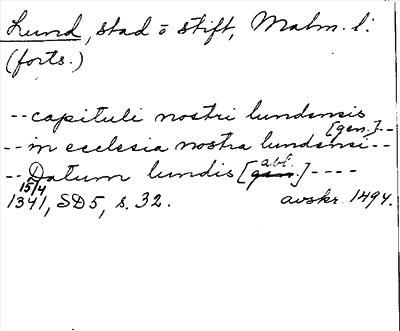 Lund, stad o stift, Malm. l.
(forts.)
-- capituli nostri lundensis
[gen.]--
-- in ecclesia nostra lundensi --
-- Datum lundis [gen. abl.] ----
15/4
1341, SD5, s. 32. avskr. 1494.